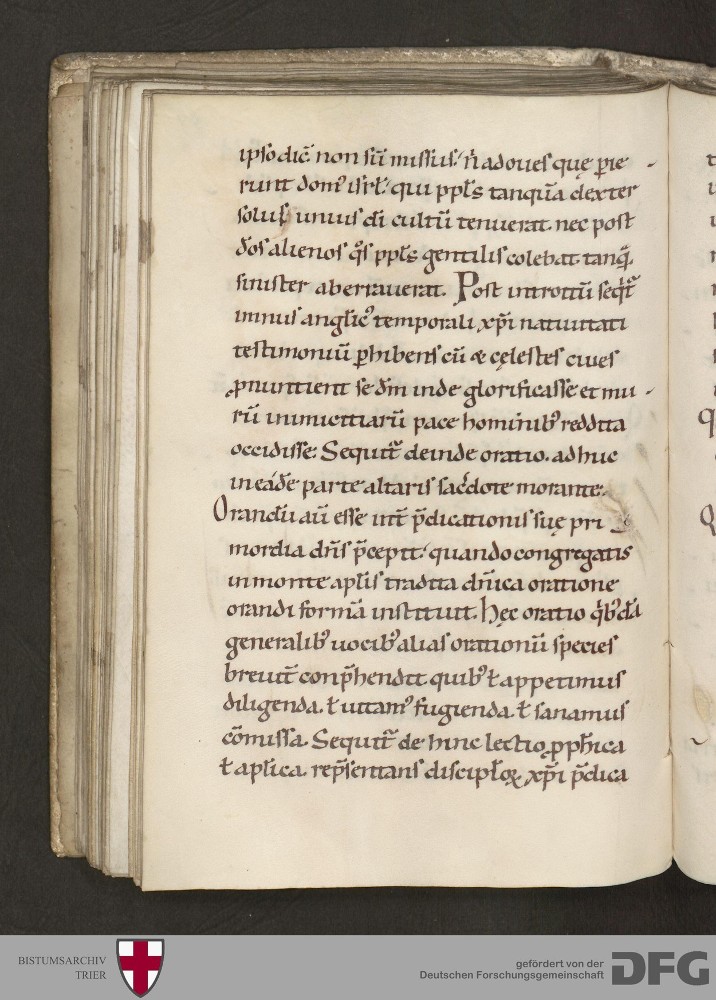 ipso dic̄ non sū missus. n̄ ad oues quę ꝑie-
runt dom᷒ isrł. qui ppłs tanquā dexter
solus unius dī cultū tenuerat. nec post
d̄os alienos qͦs ppłs gentilis colebat. tanq̄.
sinister aberrauerat. Post introitū seqͥt̄
imnus anglic᷒ temporali xp̄i natiuitati
testimoniū ꝑhibens cū & cęlestes ciues
ꝓnuntient se dm̄ inde glorificasse et mu-
rū inimicitiarū pace hominib᷒ reddita
occidisse. Sequit̄ deinde oratio. adhuc
in eád̄e parte altaris sac̄dote morante.
Orandū aū esse int̄ p̄dicationis suę pri
mordia dn̄s p̄cepit. quando congregatis
in monte apłis tradita dn̄ica oratione
orandi formā instituit. Hęc oratio qͥb᷒dā
generalib᷒ uocib᷒ alias orationū species
breuit̄ conp̄hendit quib᷒ ł appetimus
diligenda. ł uitam᷒ fugienda. ł sanamus
cōmissa. Sequit̄ dehinc lectio ꝓph̄ica
ł apłica. rep̄sentans discipłoꝝ xp̄i p̄dica
BISTUMSARCHIV
TRIER
gefördert von der
Deutschen Forschungsgemeinschaft
DFG